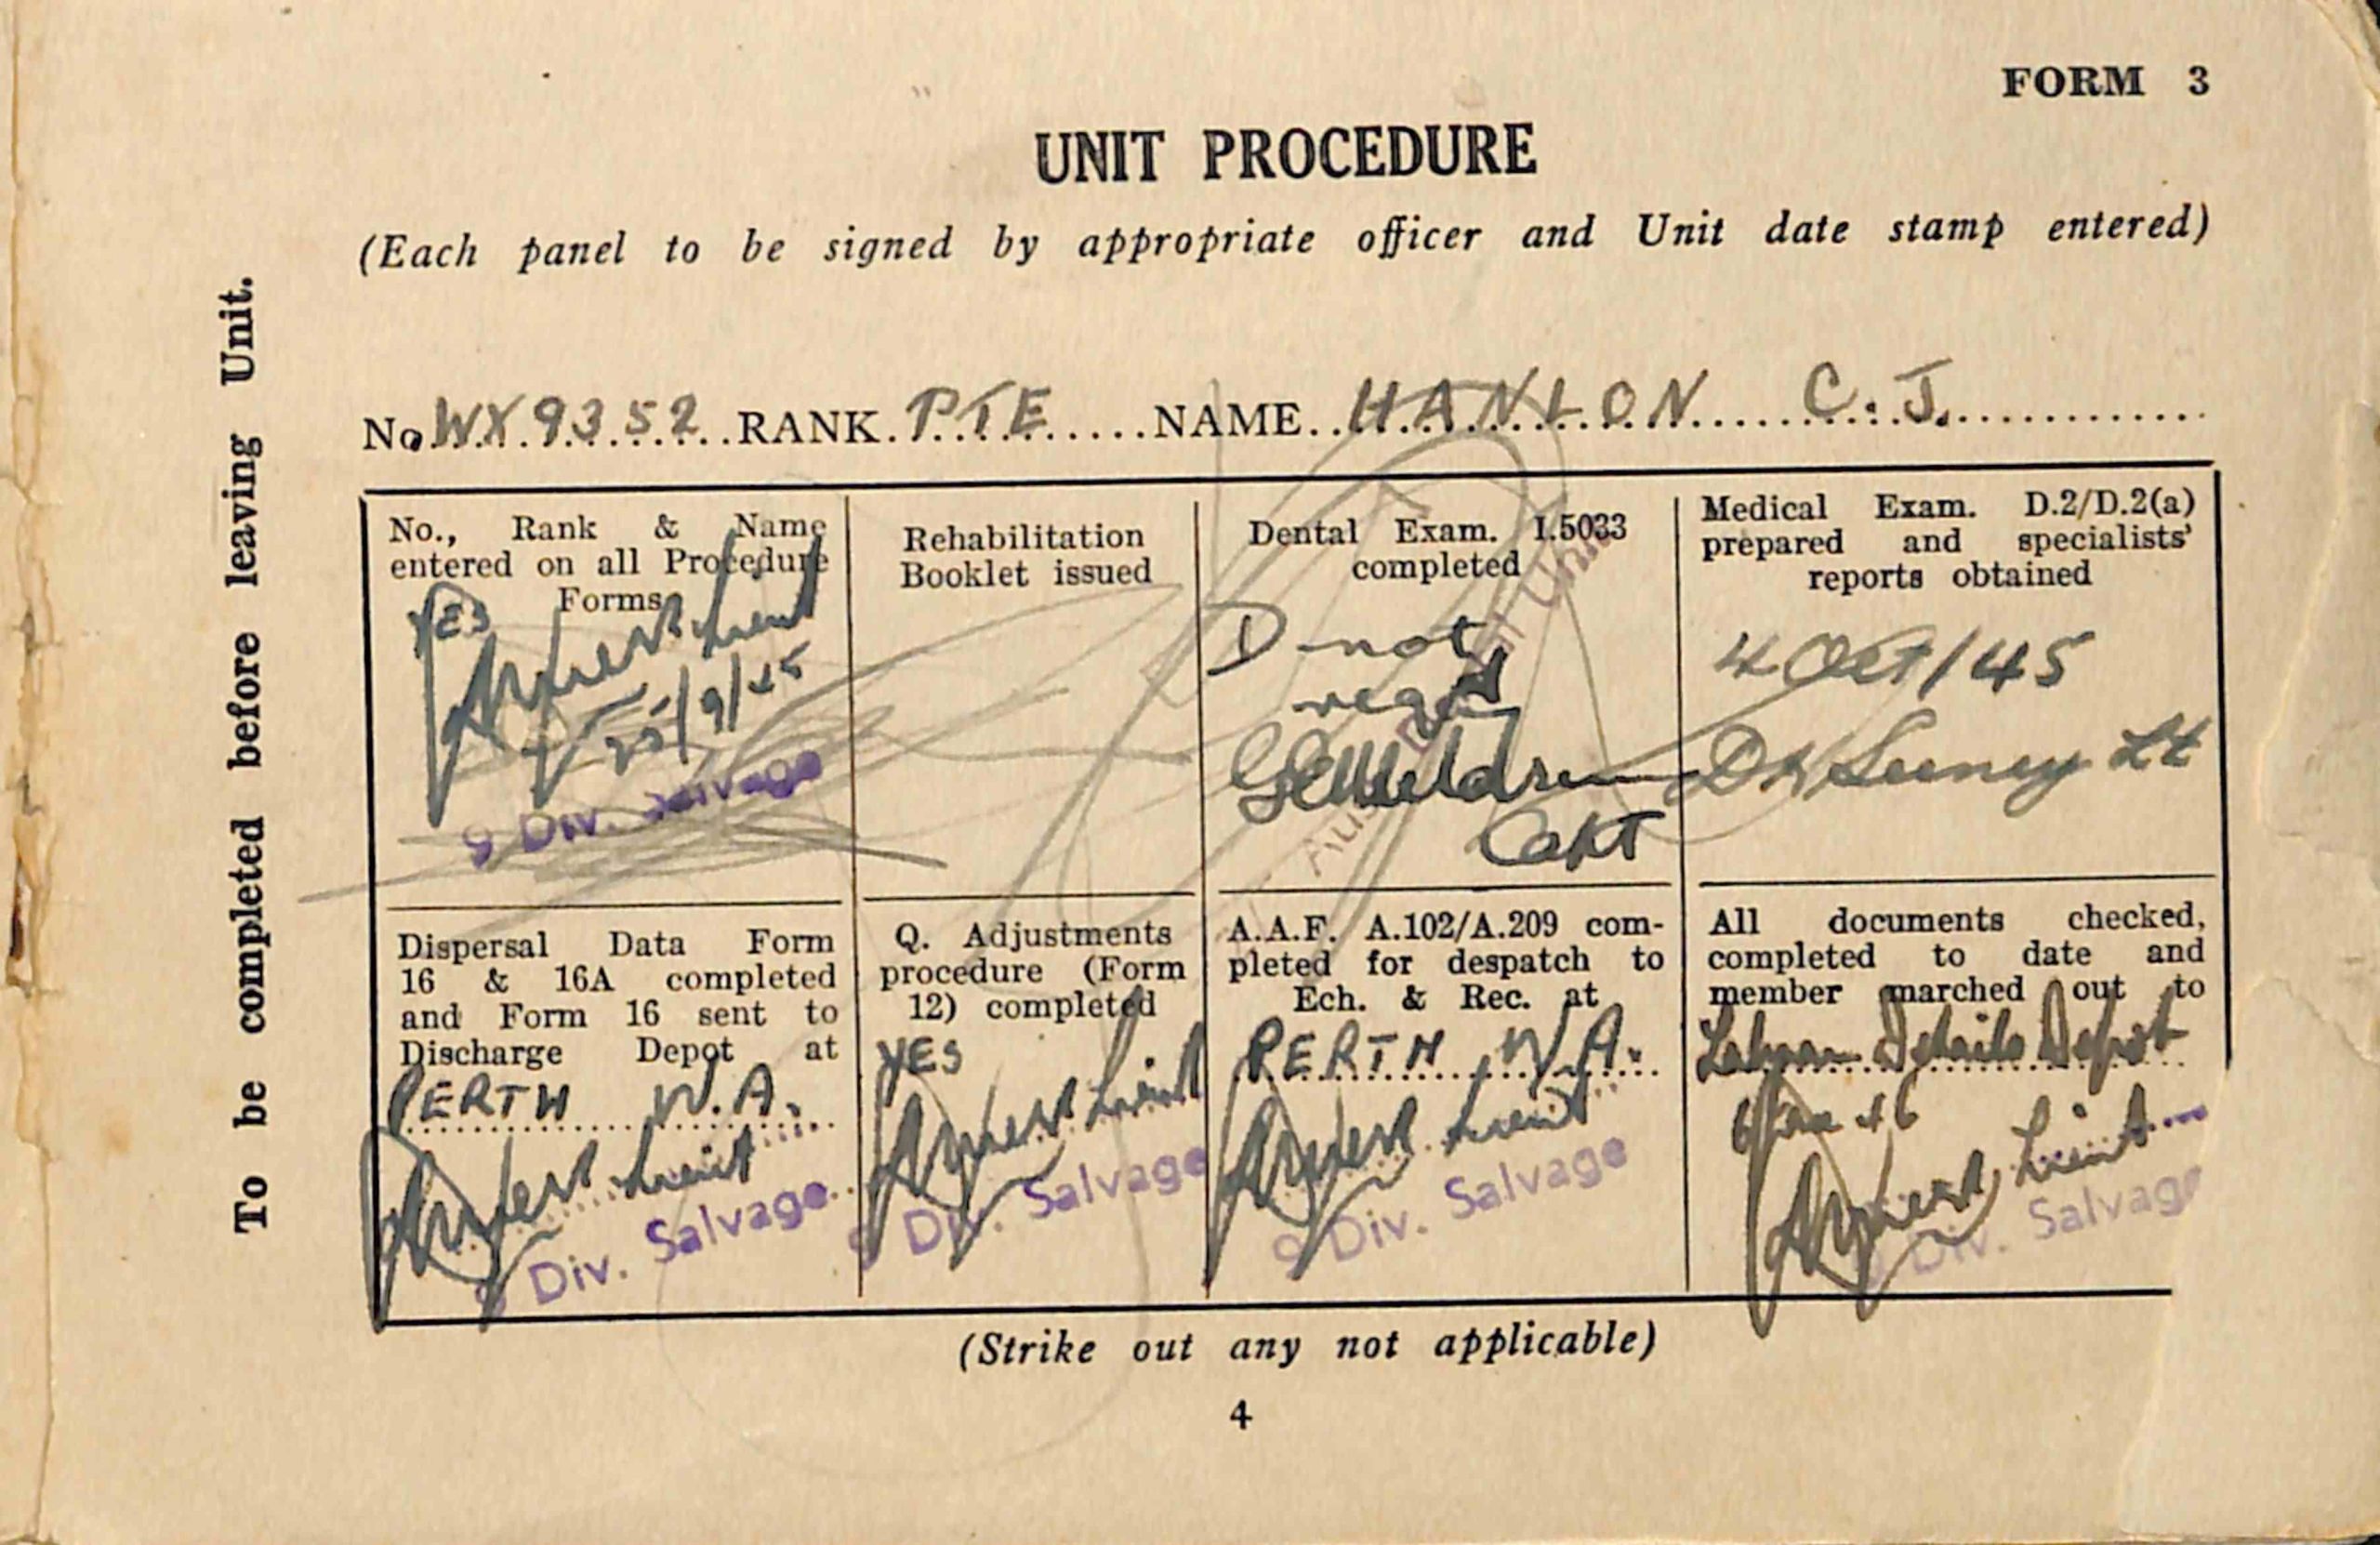 FORM 3
UNIT PROCEDURE
(Each panel to be signed by appropriate officer and Unit date stamp entered)
To be completed before leaving Unit.
No. WX 9352 RANK. PTE NAME HANLON C. J.
No., Rank & Name
entered on all Procedure
Forms
YES
Lieut
25/9/45
9 Div. Salvage
Rehabilitation
Booklet issued
Dental Exam. I.5033
completed
D not
reqd
Capt
Aust Dental Unit
Medical Exam. D.2/D.2(a)
prepared and specialists'
reports obtained
4 Oct/45
Lt
Dispersal Data Form
16 & 16A completed
and Form 16 sent to
Discharge Depot at
PERTH W.A.
Lieut
9 Div. Salvage
Q. Adjustments
procedure (Form
12) completed
YES
Lieut
9 Div. Salvage
A.A.F. A.102/A.209 com-
pleted for despatch to
Ech. & Rec. at
PERTH W.A.
Lieut
9 Div. Salvage
All documents checked,
completed to date and
member marched out to
Details Depot
6 Jan 46
Lieut
9 Div. Salvage
(Strike out any not applicable)
4